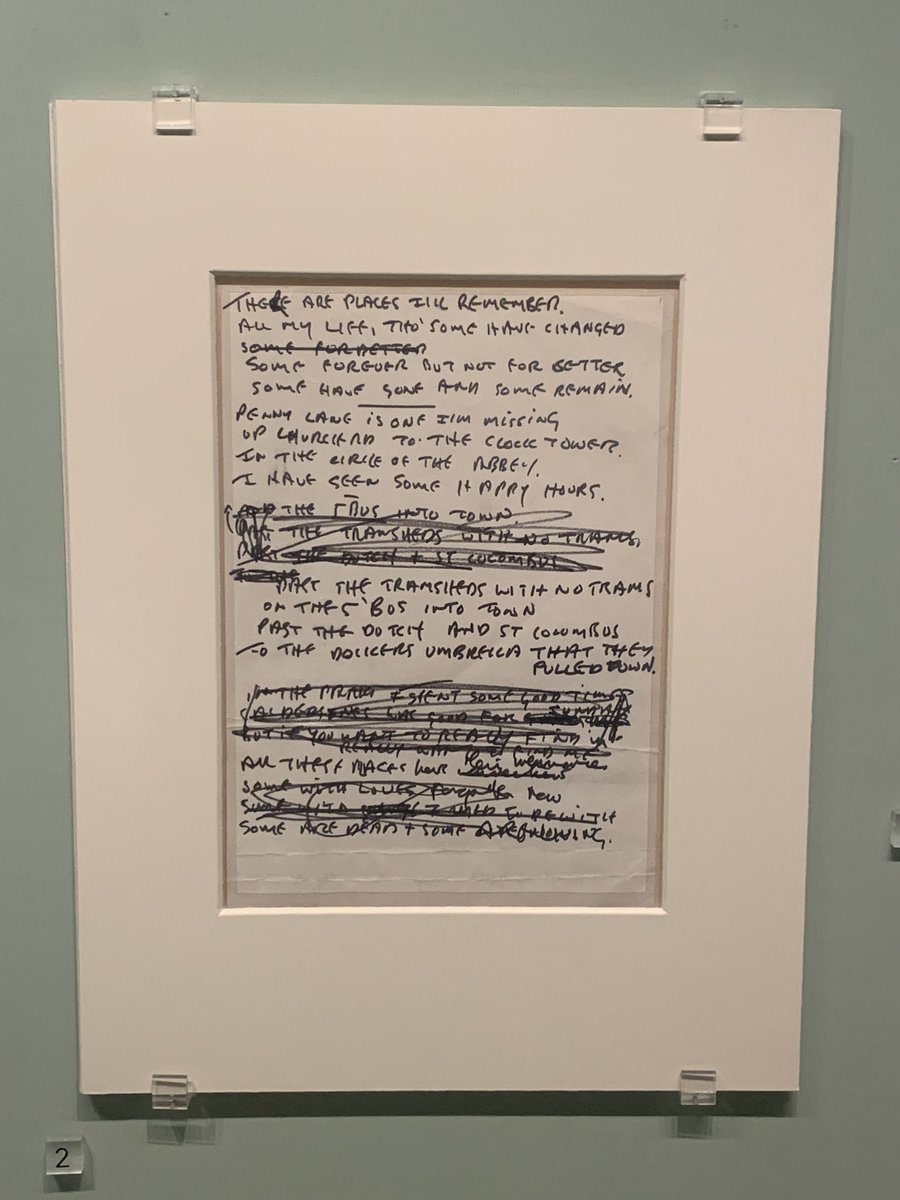 THERE ARE PLACES ILL REMEMBER.
ALL MY LIFE, THO' SOME HAVE CHANGED
SOME FOR BETTER
SOME FOREVER BUT NOT FOR BETTER
SOME HAVE GONE AND SOME REMAIN.
PENNY LANE IS ONE I'M MISSING
UP CHURCH RD TO THE CLOCK TOWER.
IN THE CIRCLE OF THE ABBEY.
I HAVE SEEN SOME HAPPY HOURS.
THE 5 BUS INTO TOWN.
THE TRAMSHEDS WITH NO TRAMS,
PAST THE DUTCH + ST COLOMBUS
PAST THE TRAMSHEDS WITH NO TRAMS
ON THE 5 BUS INTO TOWN
PAST THE DUTCH AND ST COLUMBUS
TO THE DOCKERS UMBRELLA THAT THEY
PULLED DOWN.
IN THE PARK + SPENT SOME GOOD TIMES
WAS GOOD FOR
SUMMER
BUT IF YOU WANT TO REALLY FIND
REALLY WANT TO FIND ME
ALL THESE PLACES have their memories
SOME WITH LOVES forgotten now
SOME WITH TO BE WITH
SOME ARE DEAD + SOME ARE LIVING.
2